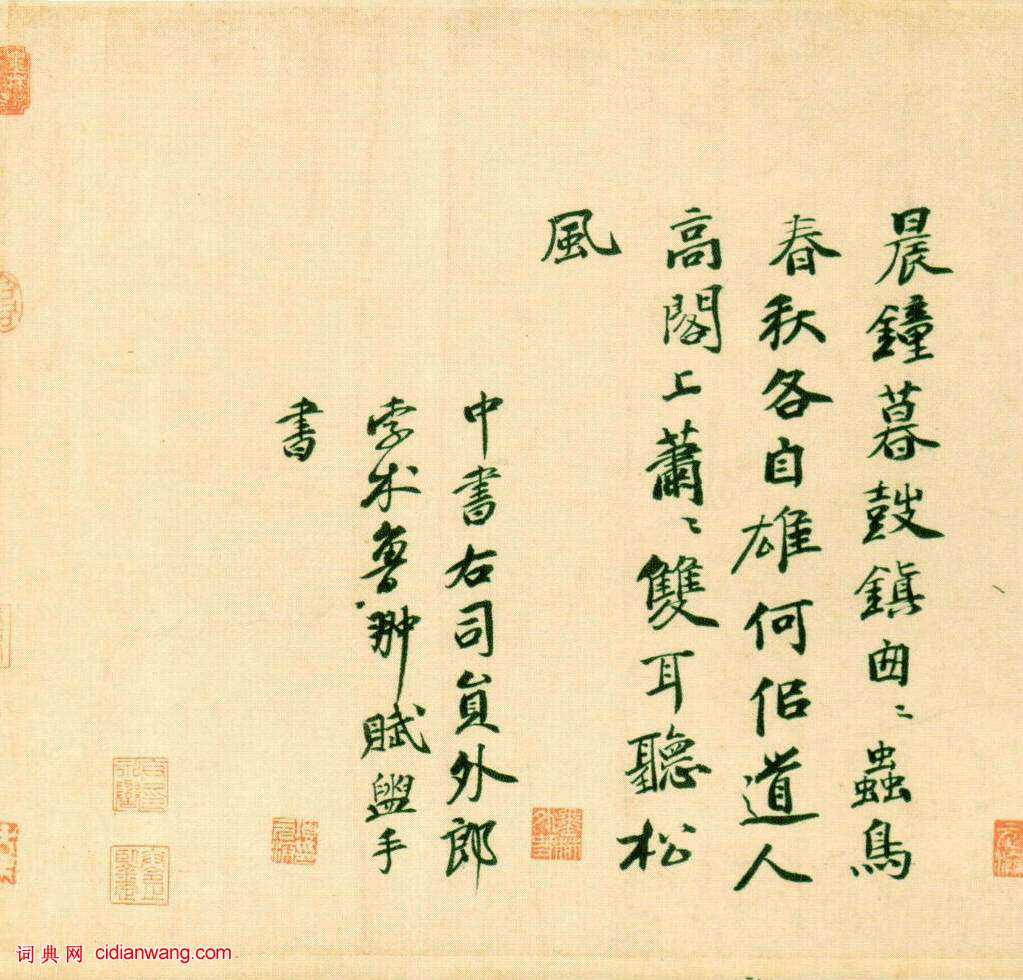 晨鐘暮鼓鎮囱〻蟲鳥
春秋各自雄何佀道人
高閣上蕭〻雙耳聽松
風
中書右司貟外郎
孛术魯翀賦盥手
書
词典网 cidianwang.com